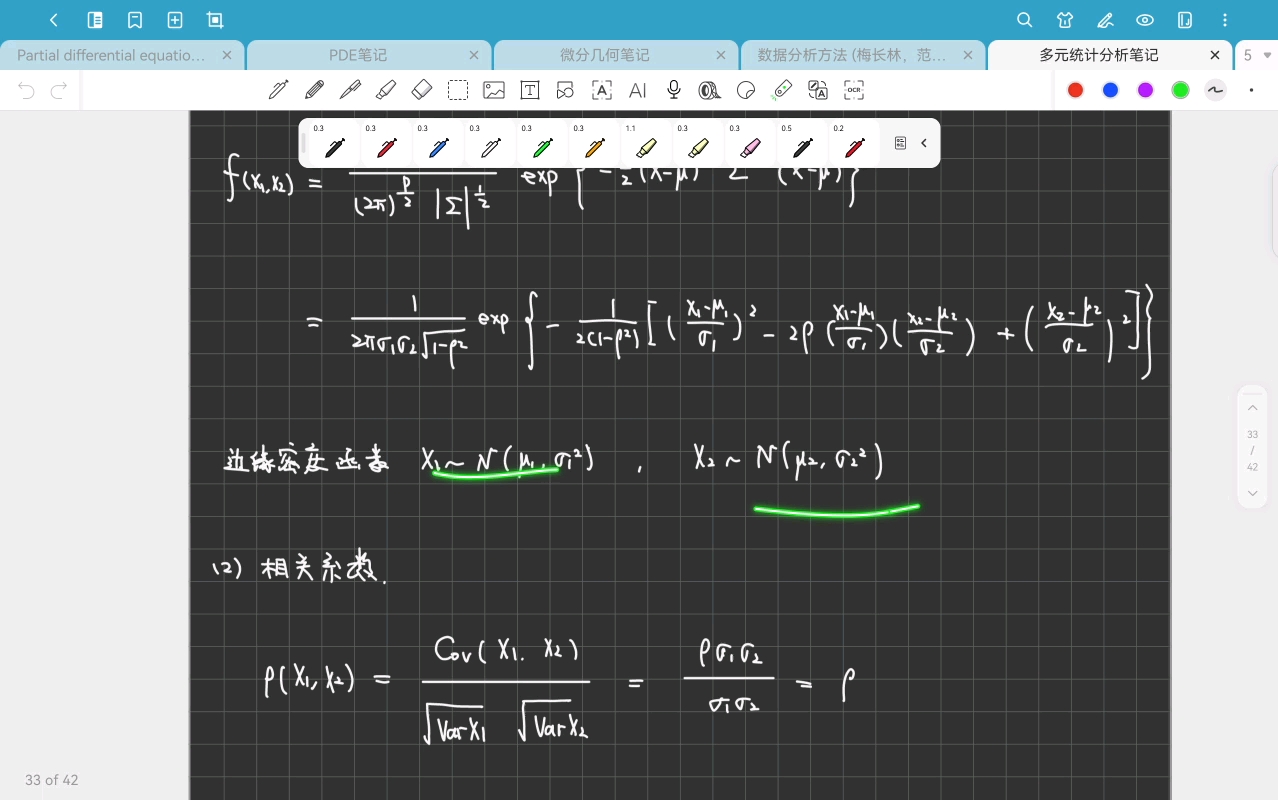 Partial differential equatio...
PDE笔记
微分几何笔记
数据分析方法 (梅长林，范...
多元统计分析笔记
5
T A AI A OCR
0.3 0.3 0.3 0.3 0.3 0.3 1.1 0.3 0.3 0.5 0.2
f(x₁,x₂) = ―/((2π)^(p/2) |Σ|^(1/2)) exp { -1/2 (x-μ) Σ (x-μ) }
= 1/(2πσ₁σ₂√(1-ρ²)) exp { - 1/(2(1-ρ²)) [ ((x₁-μ₁)/σ₁)² - 2ρ ((x₁-μ₁)/σ₁)((x₂-μ₂)/σ₂) + ((x₂-μ₂)/σ₂)² ] }
边缘密度函数 X₁ ~ N(μ₁, σ₁²) , X₂ ~ N(μ₂, σ₂²)
(2) 相关系数.
ρ(X₁, X₂) = Cov(X₁, X₂)/(√VarX₁ √VarX₂) = ρσ₁σ₂/(σ₁σ₂) = ρ
33
/
42
33 of 42